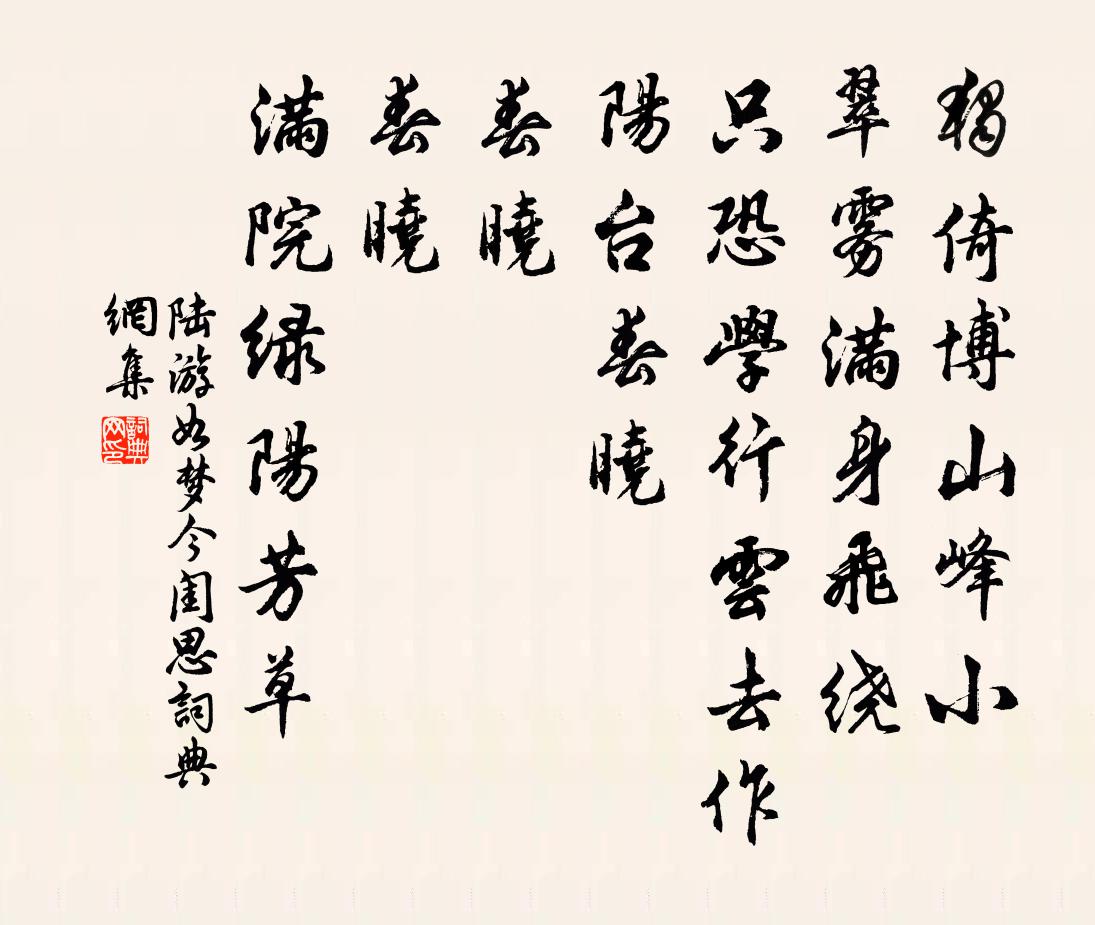 獨倚博山峰小
翠雾满身飛绕
只恐學行雲去作
陽台春曉
春曉
春曉
满院绿陽芳草
陆游如梦令闺思詞典
網集
詞典网印